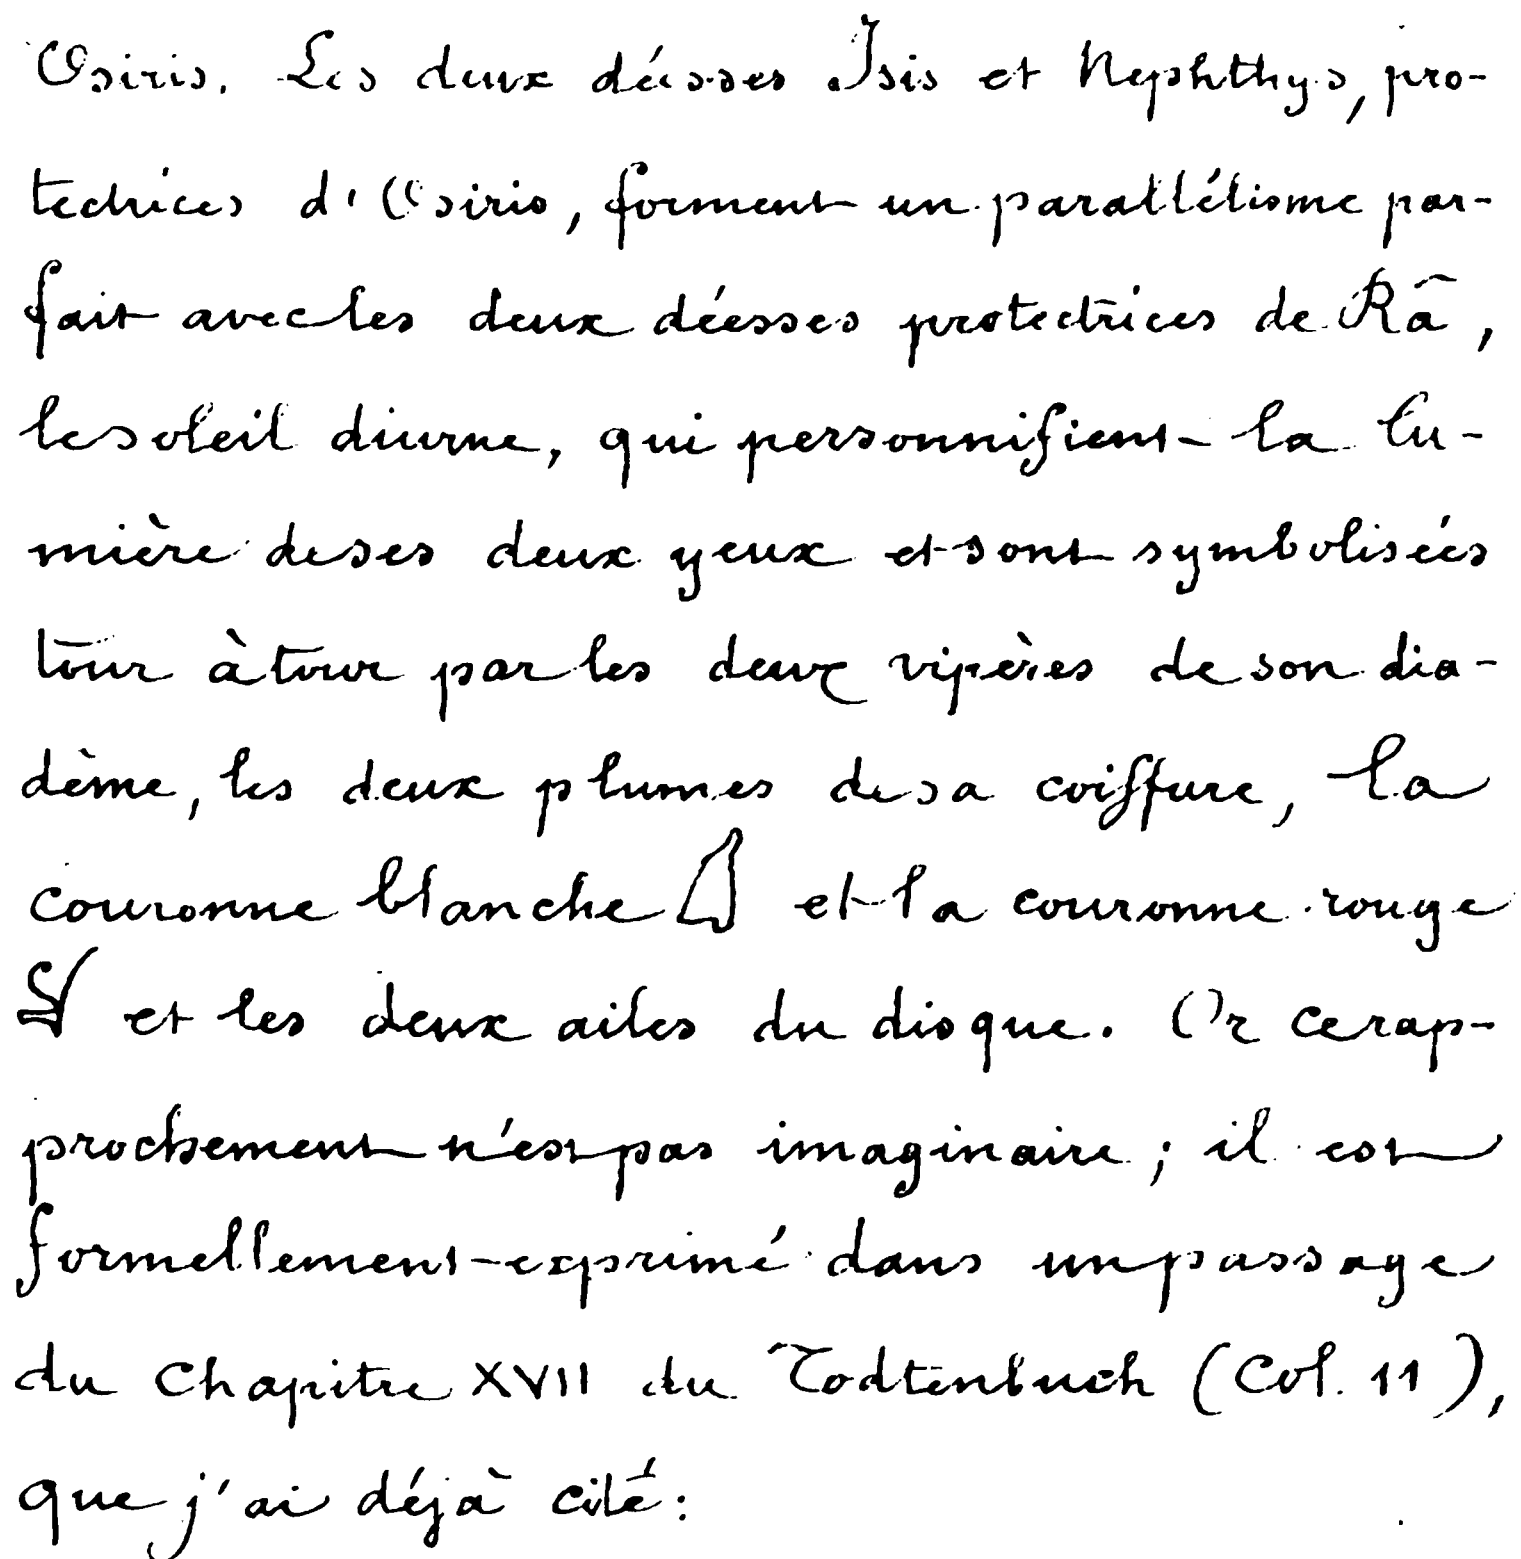 Osiris. Les deux déesses Isis et Nephthys, pro-
tectrices d'Osiris, forment un parallélisme par-
fait avec les deux déesses protectrices de Râ,
le soleil diurne, qui personnifient la lu-
mière de ses deux yeux et sont symbolisées
tour à tour par les deux vipères de son dia-
dème, les deux plumes de sa coiffure, la
couronne blanche 𓋑 et la couronne rouge
𓋔 et les deux ailes du disque. Or ce rap-
prochement n'est pas imaginaire ; il est
formellement exprimé dans un passage
du Chapitre XVII du Todtenbuch (Col. 11),
que j'ai déjà cité :